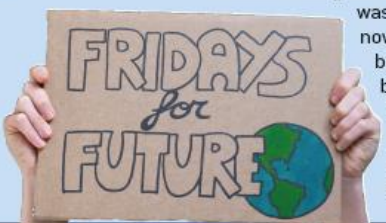 FRIDAYS
for
FUTURE
was
now
b
b